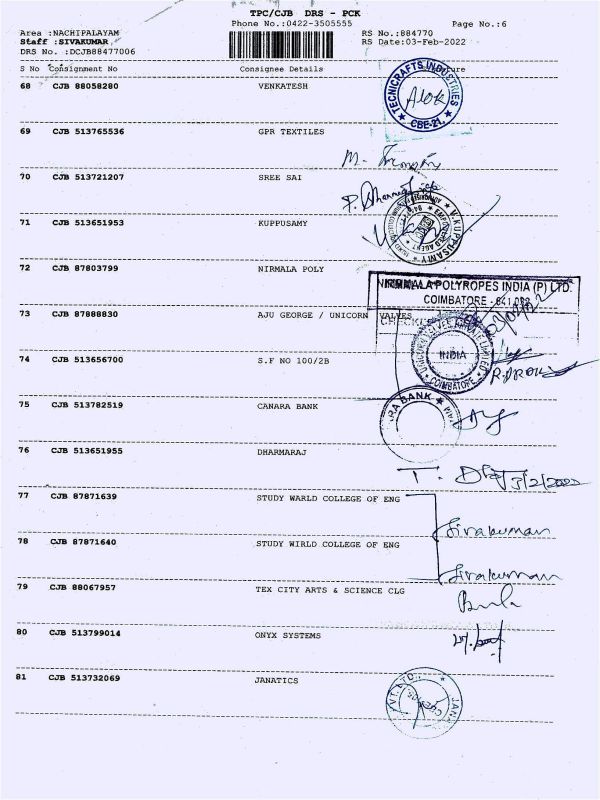 TPC/CJB DRS - PCK
Phone No.:0422-3505555
Page No.:6
Area :NACHIPALAYAM
RS No.:884770
Staff :SIVAKUMAR
RS Date:03-Feb-2022
DRS No. :DCJB88477006
S No Consignment No Consignee Details
68 CJB 88058280 VENKATESH
TECNICRAFTS INDUSTRIES
Alok
★ CBE-21. ★
69 CJB 513765536 GPR TEXTILES
70 CJB 513721207 SREE SAI
71 CJB 513651953 KUPPUSAMY
V.KUPPUSAMY
72 CJB 87803799 NIRMALA POLY
NIRMALA POLYROPES INDIA (P) LTD.
COIMBATORE - 641 032
73 CJB 87888830 AJU GEORGE / UNICORN VALVES
UNICORN VALVES PRIVATE LIMITED
INDIA
COIMBATORE
74 CJB 513656700 S.F NO 100/2B
75 CJB 513782519 CANARA BANK
RA BANK ★
76 CJB 513651955 DHARMARAJ
3/2/2022
77 CJB 87871639 STUDY WARLD COLLEGE OF ENG
Sivakumar
78 CJB 87871640 STUDY WIRLD COLLEGE OF ENG
Sivakumar
79 CJB 88067957 TEX CITY ARTS & SCIENCE CLG
80 CJB 513799014 ONYX SYSTEMS
81 CJB 513732069 JANATICS